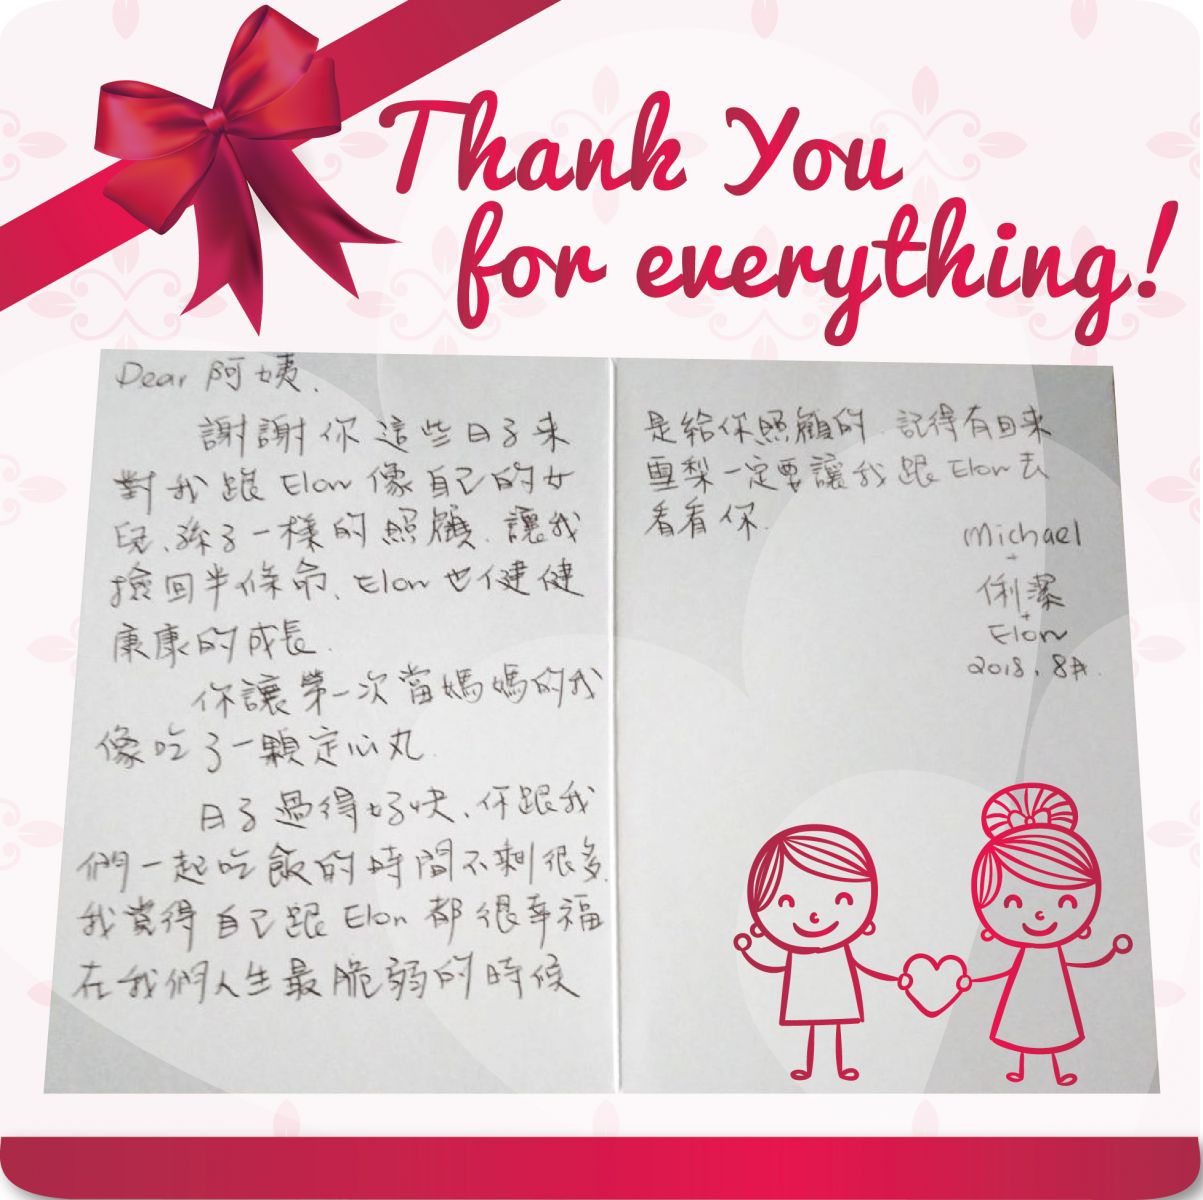 Thank You
for everything!
Dear 阿姨,
謝謝你這些日子來
對我跟Elon像自己的女
兒、孫子一樣的照顧、讓我
撿回半條命、Elon也健健
康康的成長.
你讓第一次當媽媽的我
像吃了一顆定心丸.
日子過得好快、你跟我
們一起吃飯的時間不剩很多.
我覺得自己跟Elon都很幸福
在我們人生最脆弱的時候
是給你照顧的. 記得有日來
雪梨一定要讓我跟Elon去
看看你.
Michael
+
俐潔
+
Elon
2018. 8月.